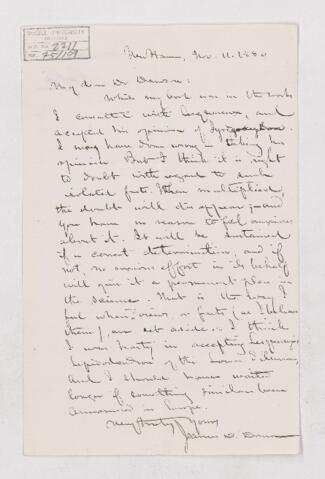 McGILL UNIVERSITY
ARCHIVES
ACC. NO. 2211
REF.
New Haven, Nov. 11. 1880
My dear Dr Dawson:
While my book was in the works
I consulted with Lesquereux, and
accepted his opinion of
I may have done wrong in taking his
opinion But I think it is right
to doubt with regard to such
isolated facts. When multiplied,
the doubts will disappear; and
you have no reason to feel anxious
about it. It will be sustained
if a correct determination, and if
not, no anxious effort in its behalf
will give it a permanent place in
the science. That is the way I
feel when views, or facts (as I believe
them), are set aside. I think
I was hasty in accepting Lesquereux's
Lepidodendron of the Lower Silurian,
and I should have waited
longer if something similar been
announced in Europe.
Very truly Yours
James D. Dana